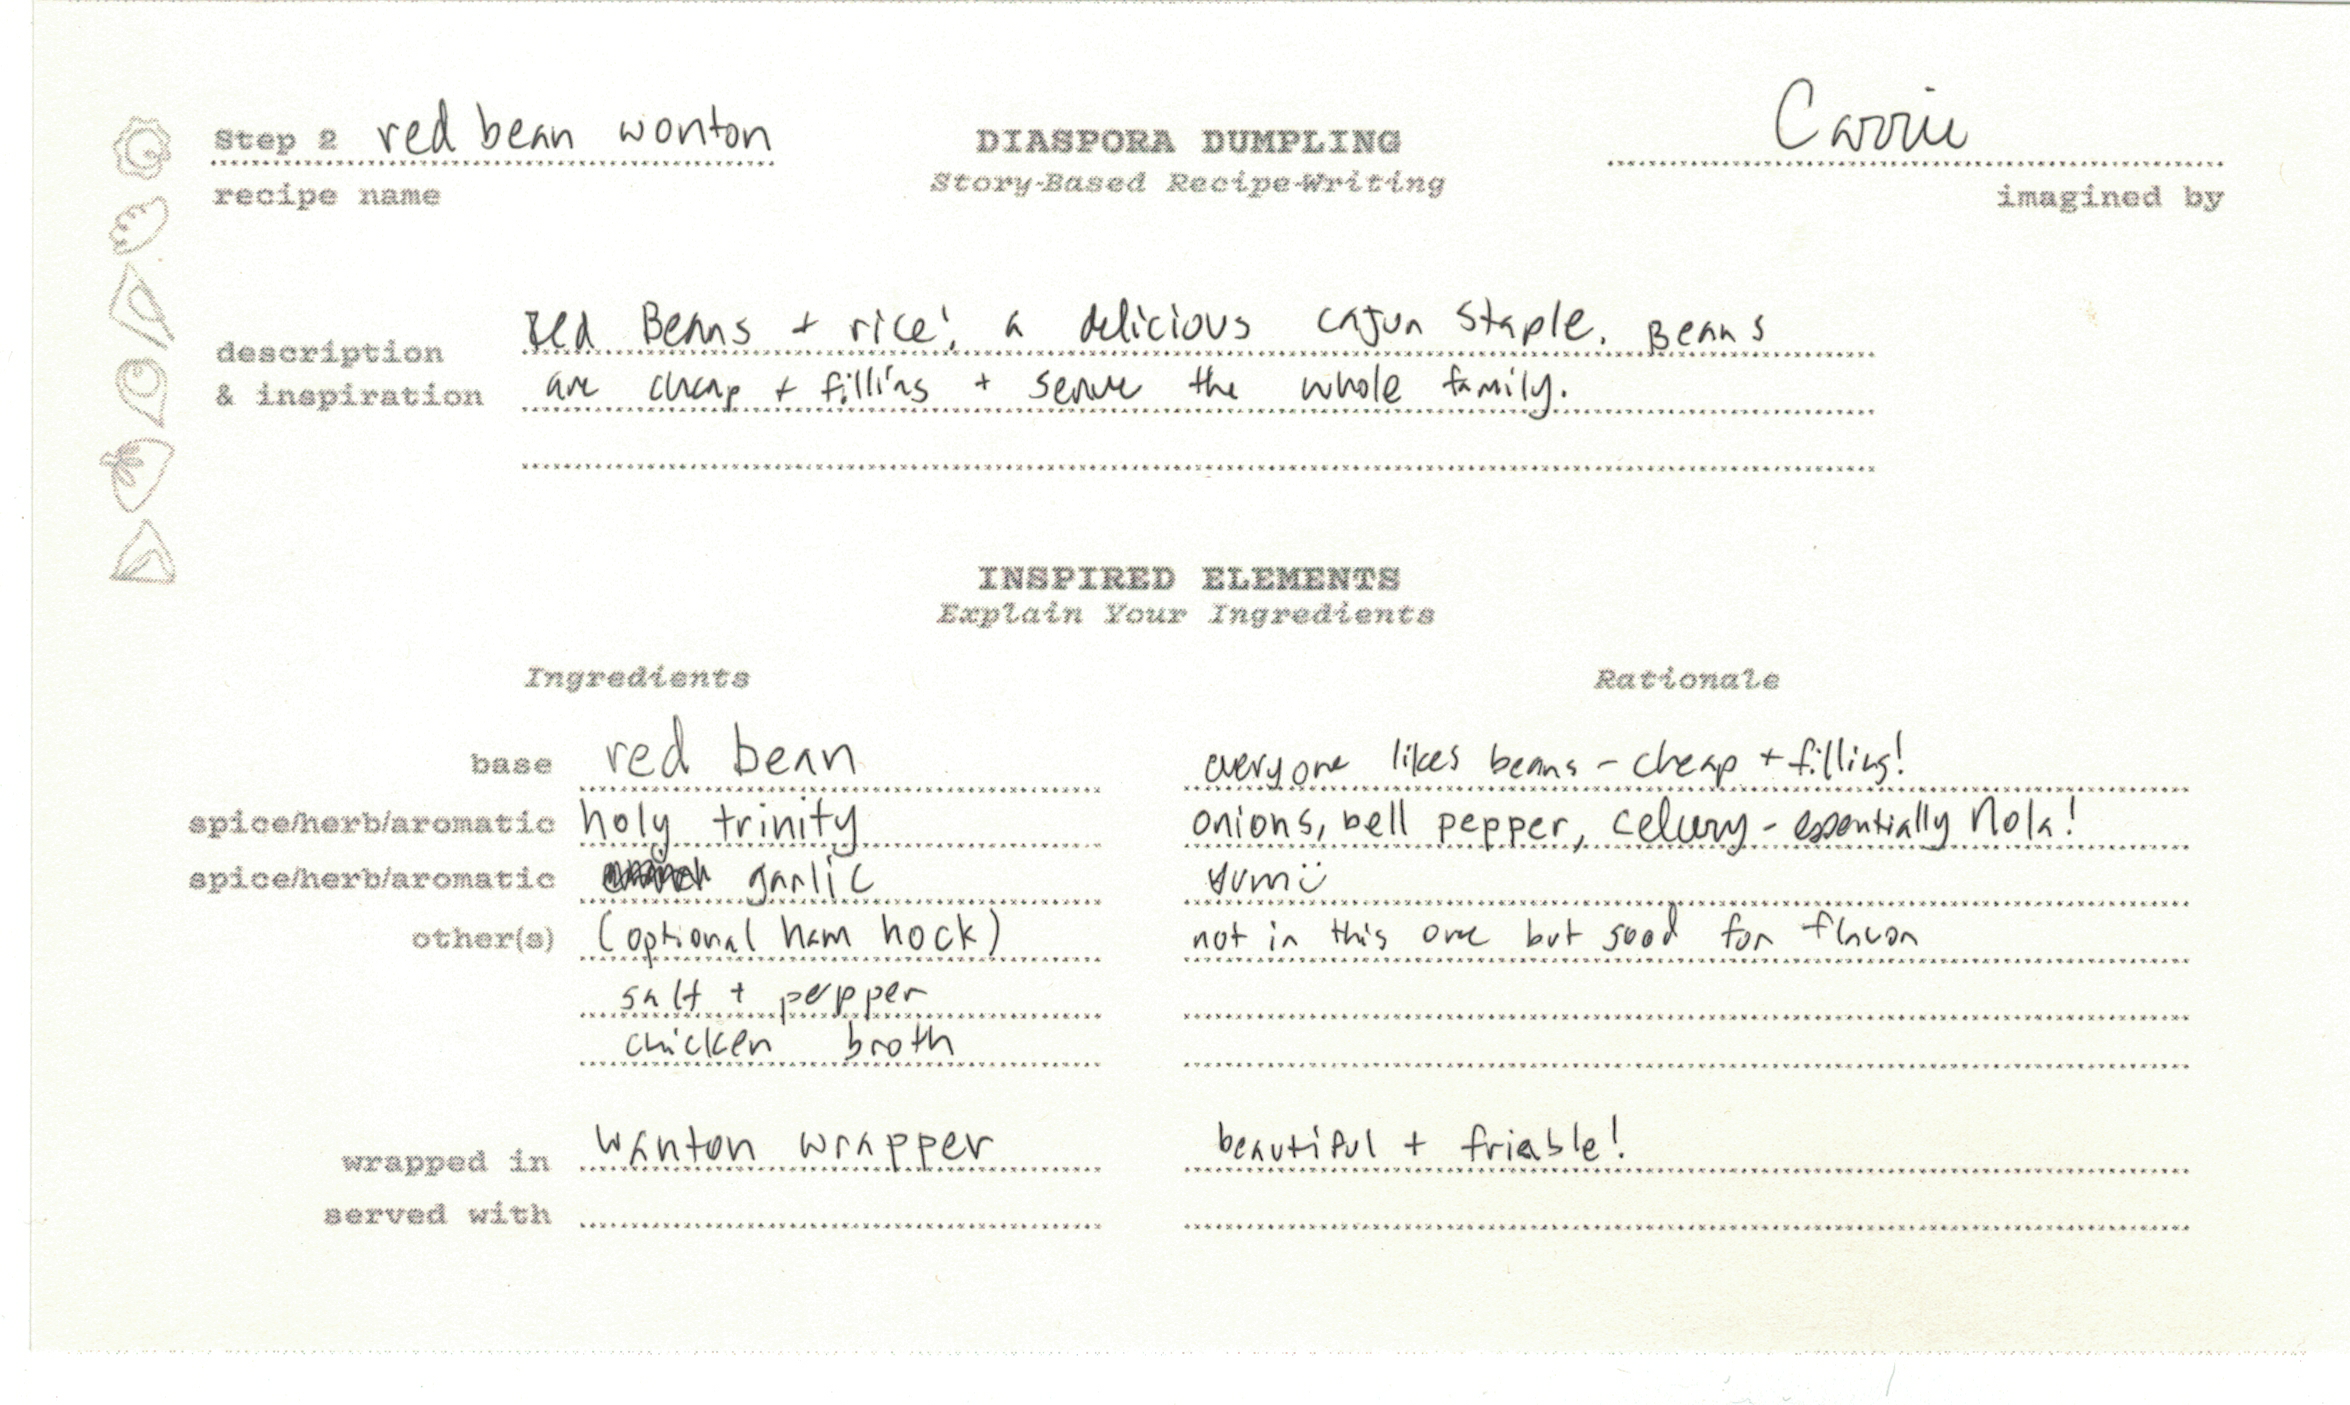 Step 2 red bean wonton
recipe name
DIASPORA DUMPLING
Story-Based Recipe-Writing
Carrie
imagined by
description
& inspiration
red Beans + rice! a delicious cajun staple. Beans
are cheap + filling + serve the whole family.
INSPIRED ELEMENTS
Explain Your Ingredients
Ingredients Rationale
base red bean everyone likes beans - cheap + filling!
spice/herb/aromatic holy trinity onions, bell pepper, celery - essentially Nola!
spice/herb/aromatic garlic yum
other(s) (optional ham hock) not in this one but good for flavor
salt + pepper
chicken broth
wrapped in wanton wrapper beautiful + friable!
served with